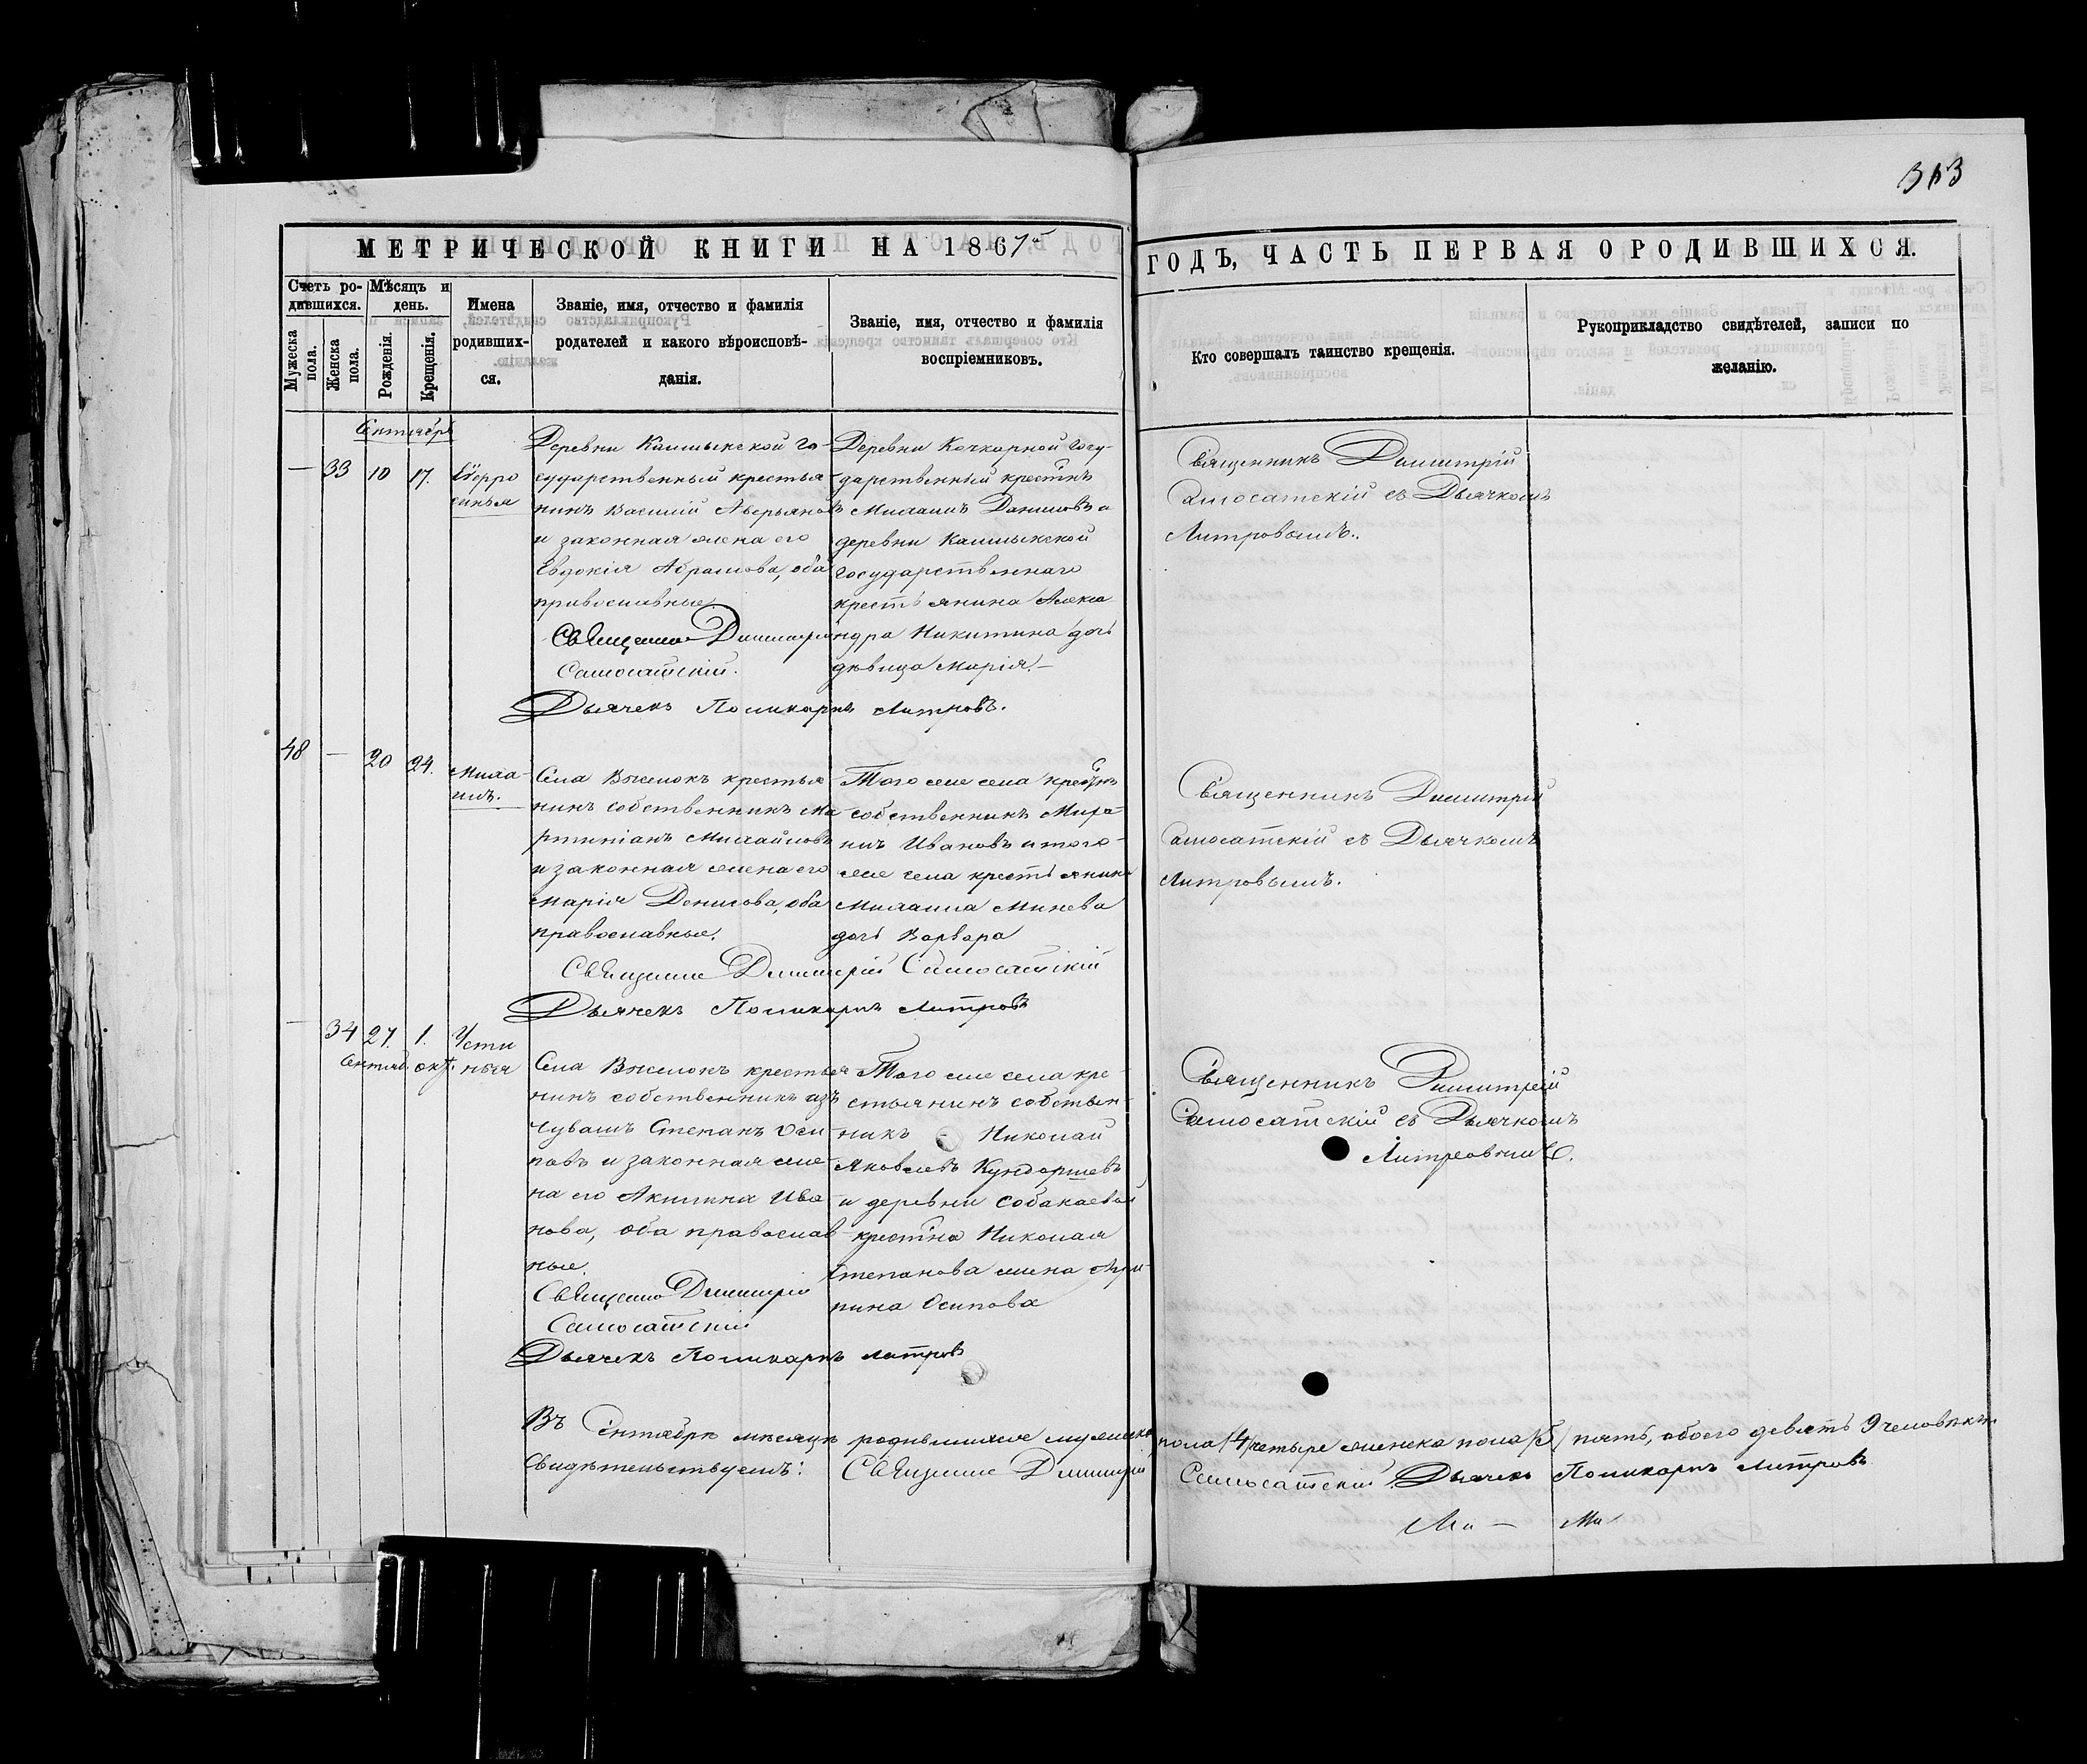 313
МЕТРИЧЕСКОЙ КНИГИ НА 1867
ГОДЪ, ЧАСТЬ ПЕРВАЯ О РОДИВШИХСЯ.
Счетъ ро-
дившихся.
Мужеска
пола.
Женска
пола.
Мѣсяцъ и
день.
Рожденія.
Крещенія.
Имена
родивших-
ся.
Званіе, имя, отчество и фамилія
родителей и какого вѣроисповѣ-
данія.
Званіе, имя, отчество и фамилія
воспріемниковъ.
Кто совершалъ таинство крещенія.
Рукоприкладство свидѣтелей, записи по
желанію.
Сентябрь
— 33 10 17.
Деревни го-
сударственный крестья
нинъ Василій Аверьяновъ
и законная жена его
Евдокія Абрамова, оба
православные.
Священно Димитрій
Самосатскій.
Дьячекъ Поликарпъ Литровъ.
Деревни Кочкарной госу-
дарственный
Михаилъ Даниловъ и
деревни
государственнаго
крестьянина Алекса
ндра Никитина дочь
дѣвица Марія.
Священникъ Димитрій
Самосатскій съ Дьячкомъ
Литровымъ.
48 — 20 24.
Миха
илъ.
Села крестья
нинъ собственникъ Ма
ртиніанъ Михайловъ
и законная жена его
Марія Денисова, оба
православные.
Священно Димитрій Самосатскій
Дьячекъ Поликарпъ Литровъ
Того же села
собственникъ
Ивановъ и того
же села крестьянина
Михаила Минева
дочь Варвара
Священникъ Димитрій
Самосатскій съ Дьячкомъ
Литровымъ.
— 34 27. 1.
Сентяб. окт.
Усти
нья
Села крестья
нинъ собственникъ изъ
чувашъ Степанъ Оси
повъ и законная же-
на его Акилина Ива
нова, оба православ
ные.
Священно Димитрій
Самосатскій
Дьячекъ Поликарпъ Литровъ
Того же села кре-
стьянинъ собствен-
никъ - Николай
Яковлевъ
и деревни Собакаевой
Николая
Степанова жена Агри-
пина Осипова
Священникъ Димитрій
Самосатскій съ Дьячкомъ
Литровымъ.
Въ Сентябрѣ мѣсяцѣ родившихся мужеска пола /4/ четыре женска пола /5/ пять, обоего девять 9 человѣкъ.
Свидѣтельствуемъ: Священно Димитрій Самосатскій. Дьячекъ Поликарпъ Литровъ